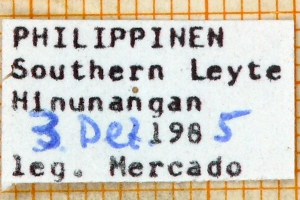 PHILIPPINEN
Southern Leyte
Hinunangan
3. Dez. 1985
leg. Mercado